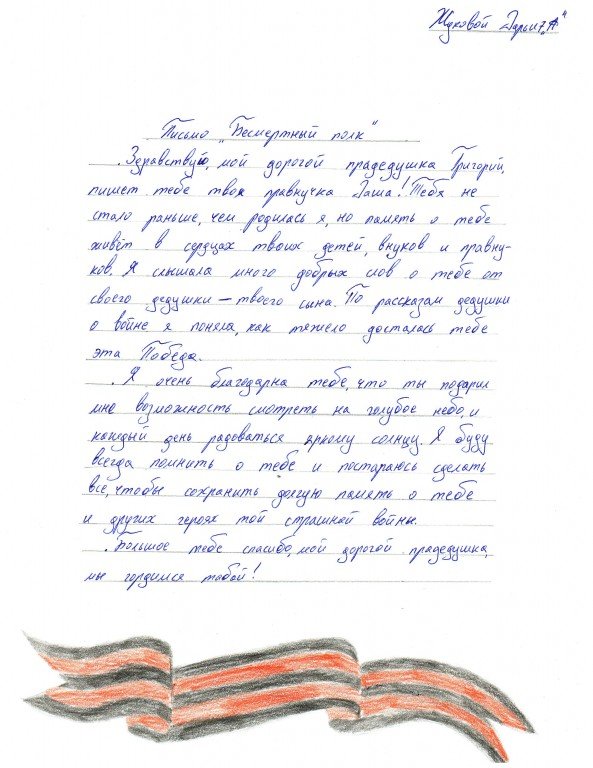 Жуковой Дарьи 7 „А"
Письмо „Бесмертный полк"
Здравствуй, мой дорогой прадедушка Григорий,
пишет тебе твоя правнучка Даша! Тебя не
стало раньше, чем родилась я, но память о тебе
живёт в сердцах твоих детей, внуков и правну-
ков. Я слышала много добрых слов о тебе от
своего дедушки – твоего сына. По рассказам дедушки
о войне я поняла, как тяжело досталась тебе
эта Победа.
Я очень благодарна тебе, что ты подарил
мне возможность смотреть на голубое небо, и
каждый день радоваться яркому солнцу. Я буду
всегда помнить о тебе и постараюсь сделать
всё, чтобы сохранить долгую память о тебе
и других героях той страшной войны.
Большое тебе спасибо, мой дорогой прадедушка,
мы гордимся тобой!